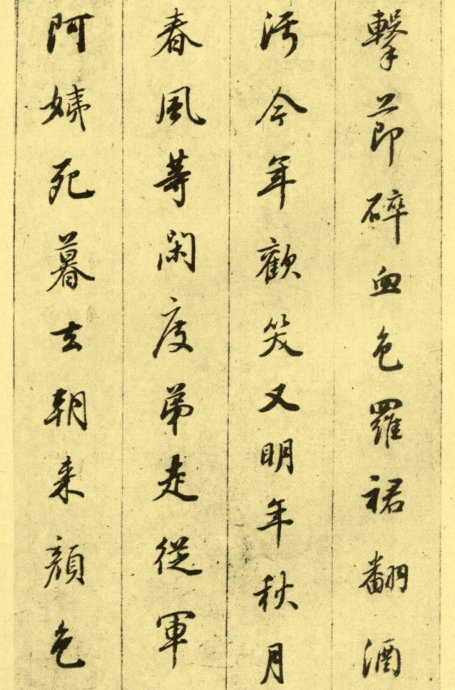 擊節碎血色羅裙翻酒
汚今年歡笑又明年秋月
春風等閑度弟走從軍
阿姨死暮去朝来顔色